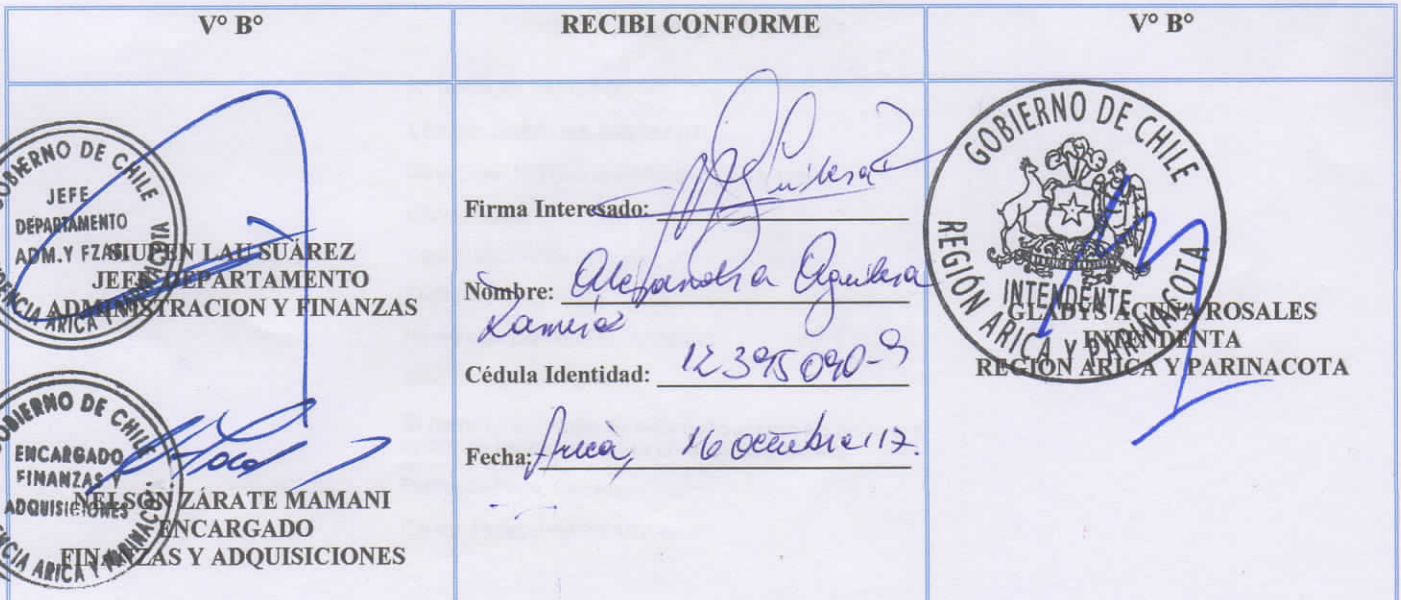 V° B°
RECIBI CONFORME
V° B°
GOBIERNO DE CHILE
JEFE
DEPARTAMENTO
ADM.Y FZAS
ARICA Y PARINACOTA
SIUPEN LAU SUÁREZ
JEFE DEPARTAMENTO
ADMINISTRACION Y FINANZAS
GOBIERNO DE CHILE
ENCARGADO
FINANZAS Y
ADQUISICIONES
ARICA Y PARINACOTA
NELSON ZÁRATE MAMANI
ENCARGADO
FINANZAS Y ADQUISICIONES
Firma Interesado: Aguilera
Nombre: Alejandra Aguilera
Ramirez
Cédula Identidad: 12.395.090-9
Fecha: Arica, 16 octubre 17.
GOBIERNO DE CHILE
INTENDENTE
REGIÓN ARICA Y PARINACOTA
GLADYS ACUÑA ROSALES
INTENDENTA
REGION ARICA Y PARINACOTA